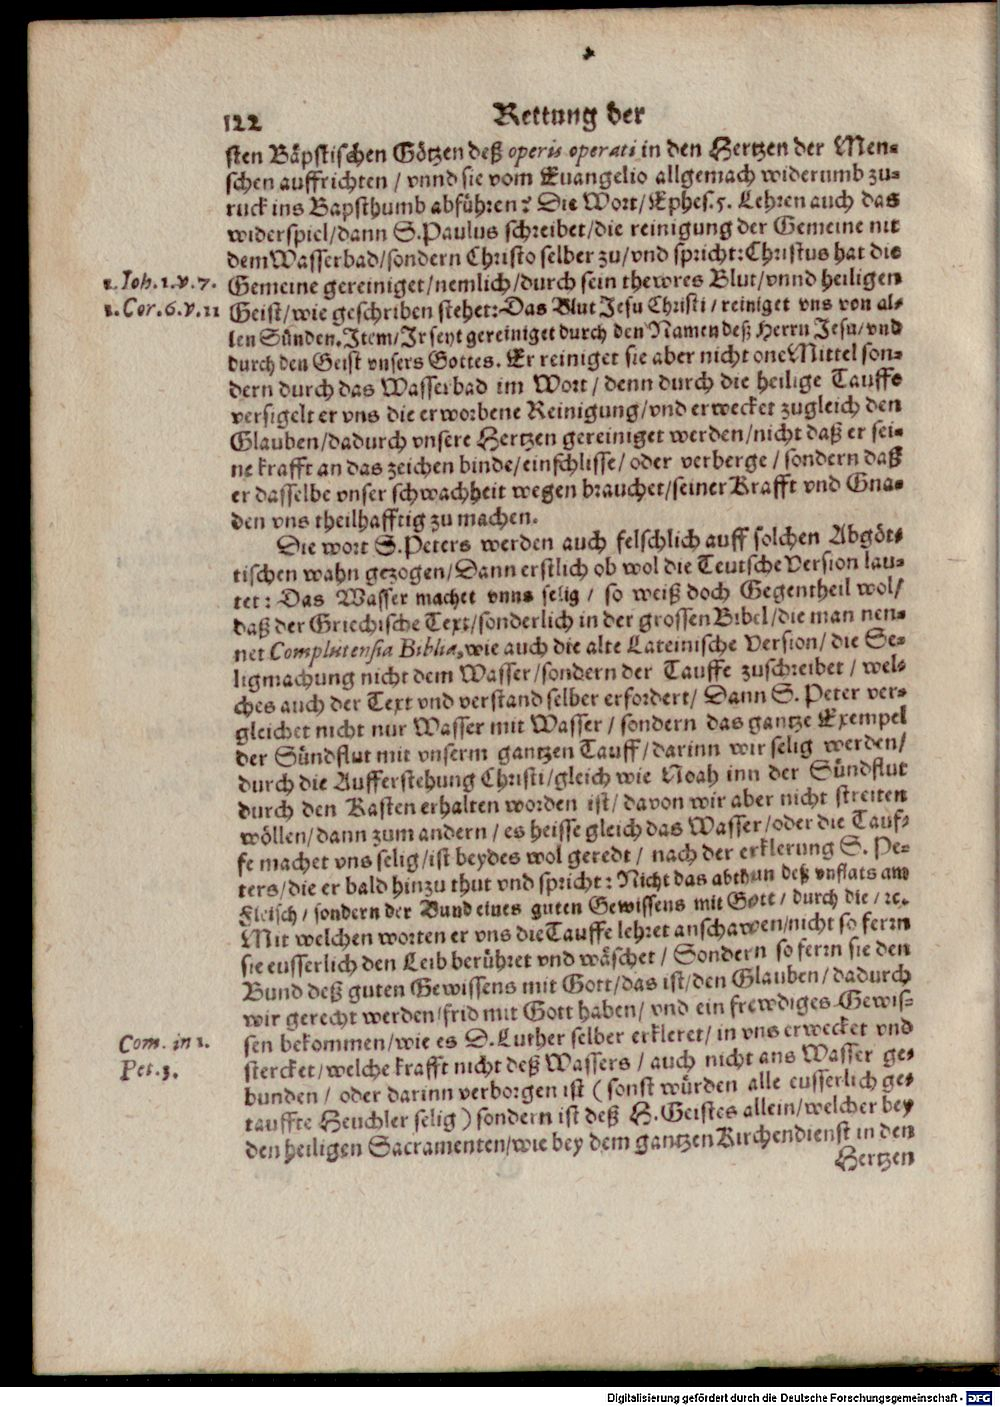 122
Rettung der
sten Bäpstischen Götzen deß operis operati in den Hertzen der Men-
schen auffrichten / vnnd sie vom Euangelio allgemach widerumb zu-
ruck ins Bapsthumb abführen? Die Wort / Ephes. 5. Lehren auch das
widerspiel / dann S. Paulus schreibet / die reinigung der Gemeine nit
dem Wasserbad / sondern Christo selber zu / vnd spricht: Christus hat die
1. Ioh. 1. v. 7.
Gemeine gereiniget / nemlich / durch sein thewres Blut / vnnd heiligen
1. Cor. 6. v. 11
Geist / wie geschriben stehet: Das Blut Jesu Christi / reiniget vns von al-
len Sünden. Item / Ir seyt gereiniget durch den Namen deß Herrn Jesu / vnd
durch den Geist vnsers Gottes. Er reiniget sie aber nicht one Mittel son-
dern durch das Wasserbad im Wort / denn durch die heilige Tauffe
versigelt er vns die erworbene Reinigung / vnd erwecket zugleich den
Glauben / dadurch vnsere Hertzen gereiniget werden / nicht daß er sei-
ne krafft an das zeichen binde / einschlisse / oder verberge / sondern daß
er dasselbe vnser schwachheit wegen brauchet / seiner Krafft vnd Gna-
den vns theilhafftig zu machen.
Die wort S. Peters werden auch felschlich auff solchen Abgöt-
tischen wahn gezogen / Dann erstlich ob wol die Teutsche Version lau-
tet: Das Wasser machet vnns selig / so weiß doch Gegentheil wol /
daß der Griechische Text / sonderlich in der grossen Bibel / die man nen-
net Complutensia Biblia, wie auch die alte Lateinische Version / die Se-
ligmachung nicht dem Wasser / sondern der Tauffe zuschreibet / wel-
ches auch der Text vnd verstand selber erfordert / Dann S. Peter ver-
gleichet nicht nur Wasser mit Wasser / sondern das gantze Exempel
der Sündflut mit vnserm gantzen Tauff / darinn wir selig werden /
durch die Aufferstehung Christi / gleich wie Noah inn der Sündflut
durch den Kasten erhalten worden ist / davon wir aber nicht streiten
wöllen / dann zum andern / es heisse gleich das Wasser / oder die Tauf-
fe machet vns selig / ist beydes wol geredt / nach der erklerung S. Pe-
ters / die er bald hinzu thut vnd spricht: Nicht das abthun deß vnflats am
Fleisch / sondern der Bund eines guten Gewissens mit Gott / durch die / ꝛc.
Mit welchen worten er vns die Tauffe lehret anschawen / nicht so ferrn
sie eusserlich den Leib berühret vnd wäschet / Sondern so ferrn sie den
Bund deß guten Gewissens mit Gott / das ist / den Glauben / dadurch
wir gerecht werden / frid mit Gott haben / vnd ein frewdiges Gewis-
Com. in 1.
sen bekommen / wie es D. Luther selber erkleret / in vns erwecket vnd
Pet. 3.
stercket / welche krafft nicht deß Wassers / auch nicht ans Wasser ge-
bunden / oder darinn verborgen ist ( sonst würden alle eusserlich ge-
tauffte Heuchler selig ) sondern ist deß H. Geistes allein / welcher bey
den heiligen Sacramenten / wie bey dem gantzen Kirchendienst in den
Hertzen
Digitalisierung gefördert durch die Deutsche Forschungsgemeinschaft - DFG